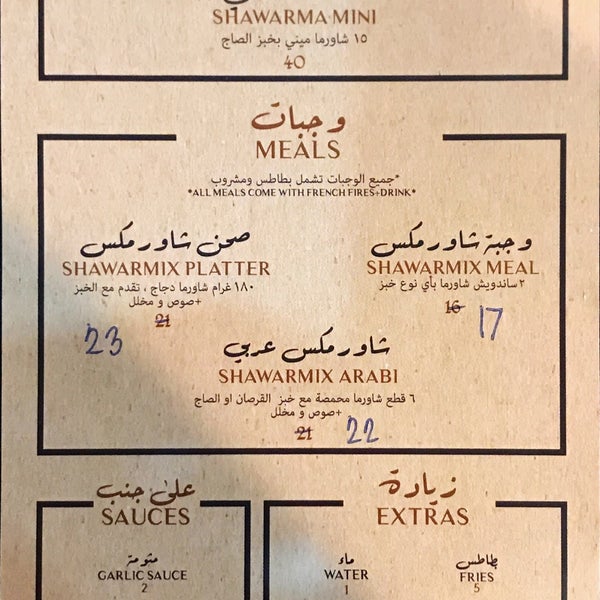 SHAWARMA MINI
١٥ شاورما ميني بخبز الصاج
40
وجبات
MEALS
*جميع الوجبات تشمل بطاطس ومشروب
*ALL MEALS COME WITH FRENCH FIRES+DRINK*
صحن شاورمكس
SHAWARMIX PLATTER
١٨٠ غرام شاورما دجاج ، تقدم مع الخبز
+صوص و مخلل
21
23
وجبة شاورمكس
SHAWARMIX MEAL
٢ساندويش شاورما بأي نوع خبز
16
17
شاورمكس عربي
SHAWARMIX ARABI
٦ قطع شاورما محمصة مع خبز القرصان او الصاج
+صوص و مخلل
21
22
على جنب
SAUCES
مثومة
GARLIC SAUCE
2
زيادة
EXTRAS
ماء
WATER
1
بطاطس
FRIES
5